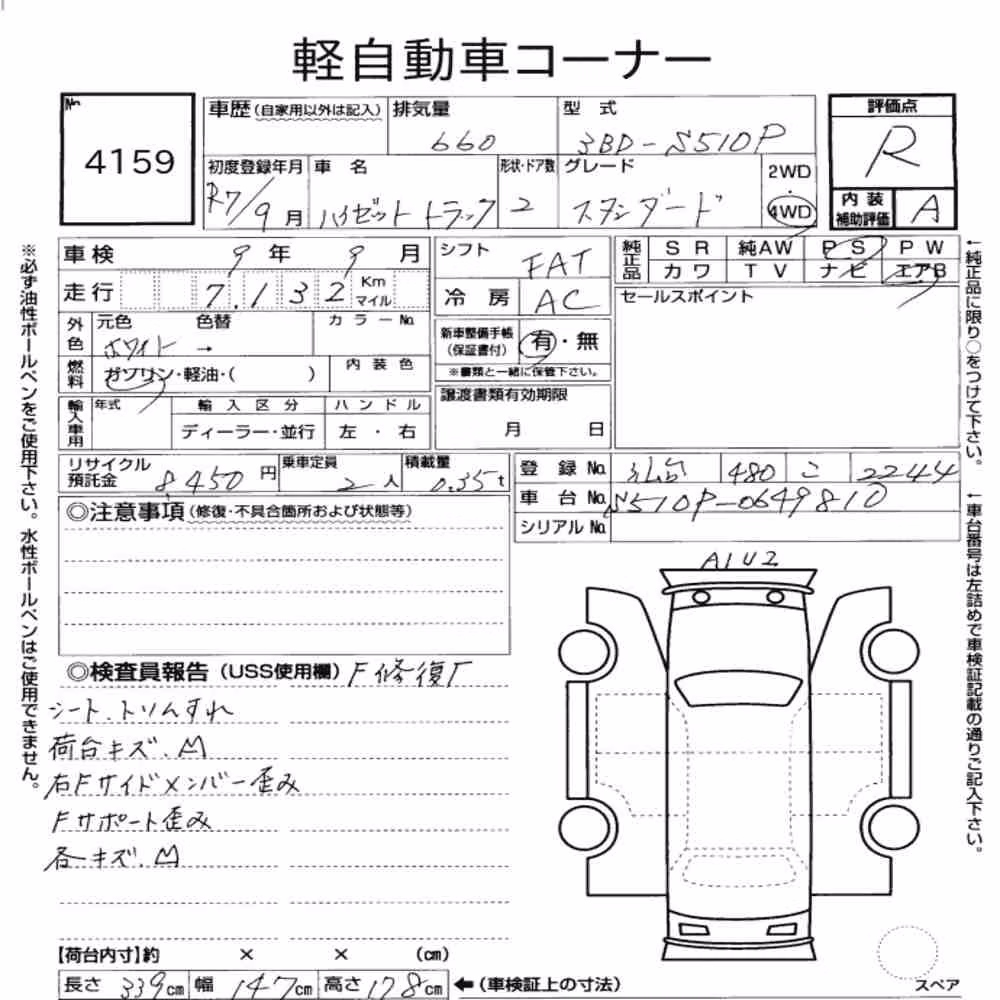 軽自動車コーナー
No. 4159
車歴(自家用以外は記入) 排気量 660 型式 3BD-S510P
評価点 R
初度登録年月 R7/9月 車名 ハイゼットトラック 形状・ドア数 2 グレード スタンダード 2WD・4WD
内装補助評価 A
車検 9年 9月
走行 7.132 Km マイル
外色 元色 ホワイト 色替 → カラーNo.
燃料 ガソリン・軽油・( ) 内装色
輸入車用 年式 輸入区分 ディーラー・並行 ハンドル 左・右
シフト FAT
冷房 AC
新車整備手帳(保証書付) 有・無
※書類と一緒に保管下さい。
譲渡書類有効期限 月 日
純正品 SR 純AW PS PW
カワ TV ナビ エアB
セールスポイント
リサイクル預託金 8450円 乗車定員 2人 積載量 0.35t
登録No. 480 こ 2244
車台No. S510P-0649810
シリアルNo.
◎注意事項(修復・不具合箇所および状態等)
◎検査員報告(USS使用欄) F修復歴
シート、トリムすれ
荷台キズ、凹
右Fサイドメンバー歪み
Fサポート歪み
各キズ、凹
A1 U2
【荷台内寸】約 × × (cm)
長さ 339cm 幅 147cm 高さ 178cm ←(車検証上の寸法)
スペア
※必ず油性ボールペンをご使用下さい。水性ボールペンはご使用できません。
←純正品に限り○をつけて下さい。
←車台番号は左詰めで車検証記載の通りご記入下さい。